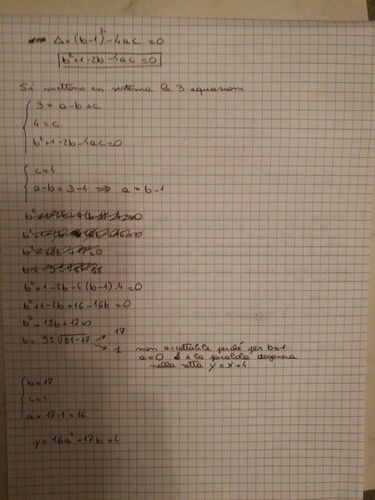 Δ = (b-1)² - 4ac = 0
b² + 1 - 2b - 4ac = 0
Si mettono in sistema le 3 equazioni
3 = a - b + c
4 = c
b² + 1 - 2b - 4ac = 0
c = 4
a - b = 3 - 4 ⇒ a = b - 1
b² + 1 - 2b - 4(b-1)·4 = 0
b² + 1 - 2b + 16 - 16b = 0
b² - 18b + 17 = 0
b = 9 ± √81-17 17
1 non accettabile perché per b=1
a=0 e la parabola degenera
nella retta y = x + 4
b = 17
c = 4
a = 17 - 1 = 16
y = 16a² + 17b + 4